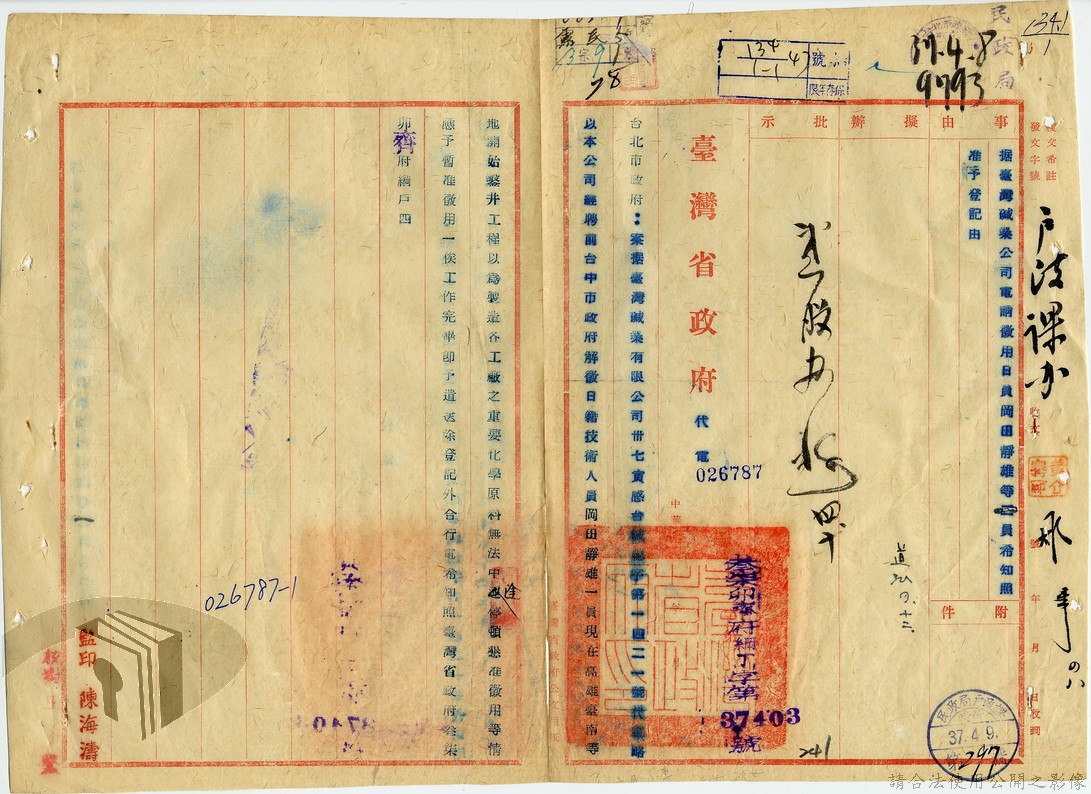 民政局
1341
1
37.4.8
9793
134
1-1
47
號
保存年限
28
事由
擬辦
批示
附件
據臺灣碱業公司電請徵用日員岡田靜雄等四員希知照
准予登記由
戶政課亦
四、十
臺灣省政府
代電
026787
叁柒卯齊府綱丁字第
37403
號
台北市政府：案據臺灣碱業有限公司卅七寅感台碱總字第一四二一號代電略
以本公司經聘前台中市政府解徵日籍技術人員岡田靜雄一員現在高雄臺南等
地開始鑿井工程以為製造各工廠之重要化學原料無法中途停頓懇准徵用等情
應予暫准徵用一俟工作完畢即予遣送除登記外合行電希知照臺灣省政府叁柒
卯齊府綱戶四
026787-1
監印 陳海濤
民政局
37.4.9.
第297號
241
年
月
日收到
請合法使用公開之影像